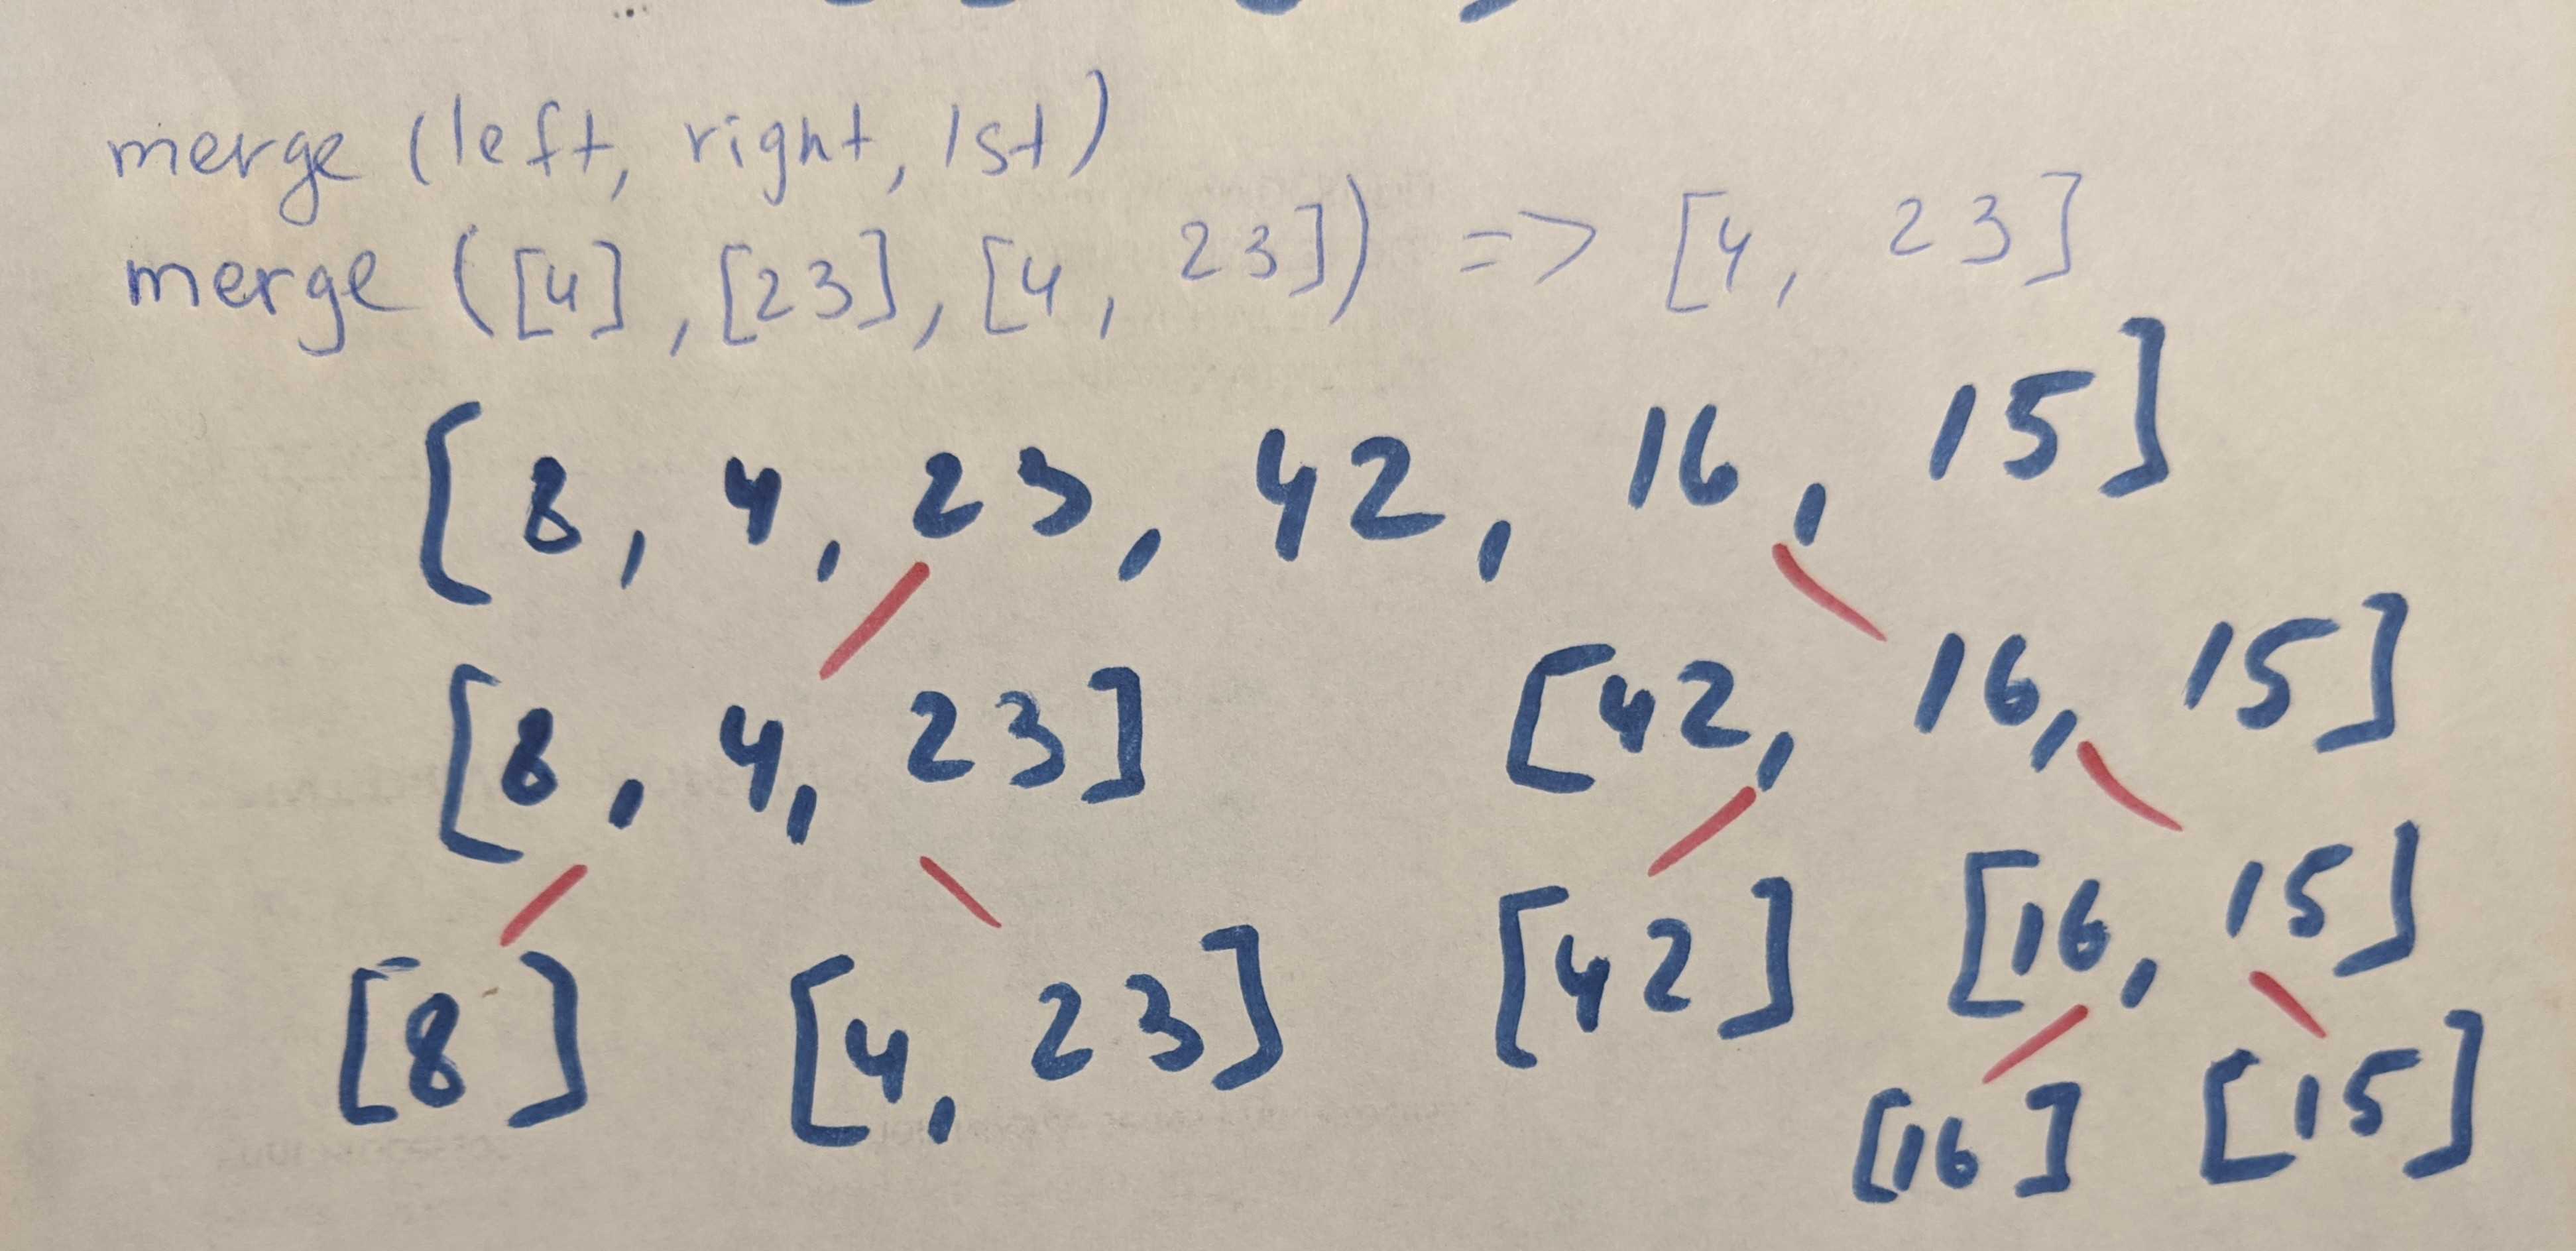 merge (left, right, lst)
merge ([4], [23], [4, 23]) => [4, 23]
[8, 4, 23, 42, 16, 15]
[8, 4, 23] [42, 16, 15]
[8] [4, 23] [42] [16, 15]
[16] [15]